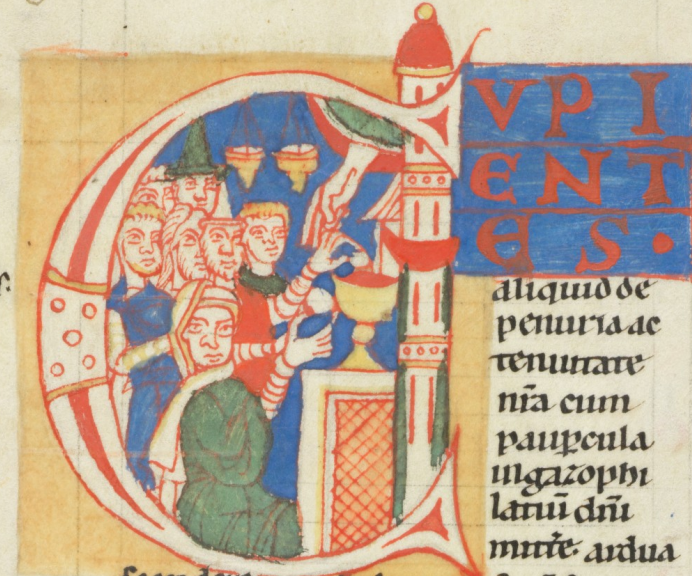 CVPI
ENT
ES.
aliquid de
penuria ac
tenuitate
nr̄a cum
paup̱cula
in gazophi
latiū dn̄i
mitte&#x72;e. ardua